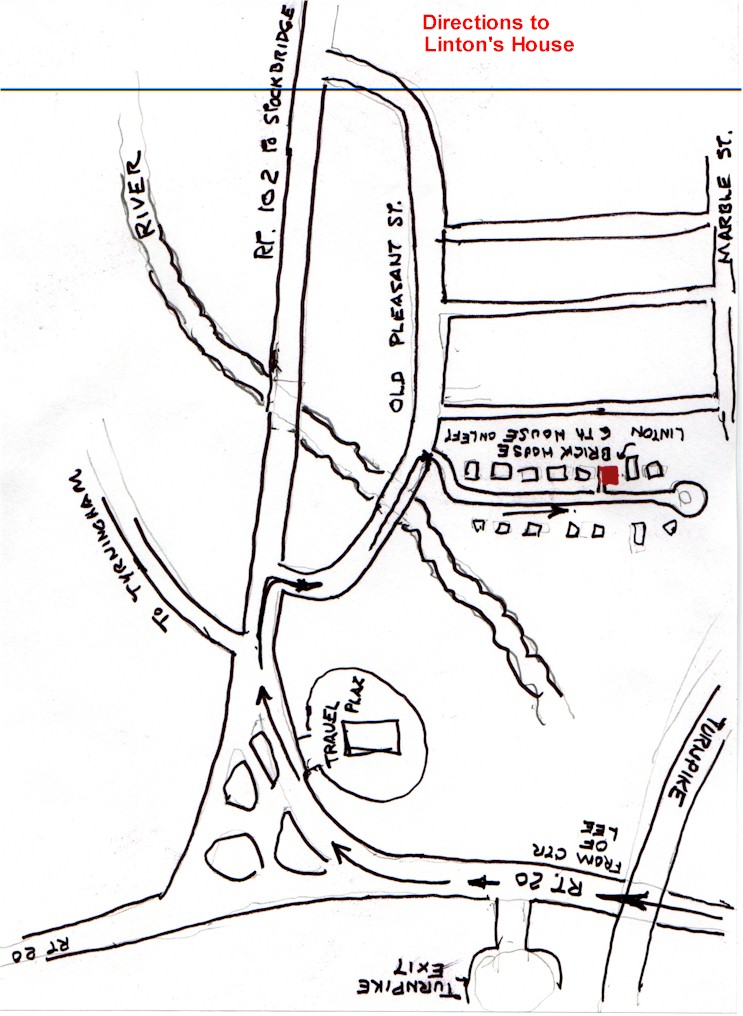 Directions to
Linton's House
RT. 102 TO STOCKBRIDGE
RIVER
OLD PLEASANT ST.
MARBLE ST.
LINTON 6TH HOUSE ON LEFT
BRICK HOUSE
TO TYRNINGHAM
TRAVEL
PLAZ
TURNPIKE
FROM CTR
OF
LEE
RT. 20
RT 20
TURNPIKE
EXIT